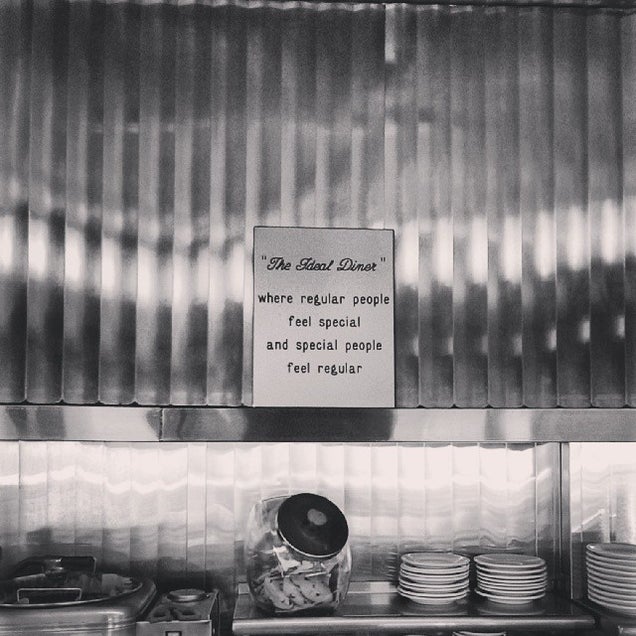 "The Ideal Diner"
where regular people
feel special
and special people
feel regular